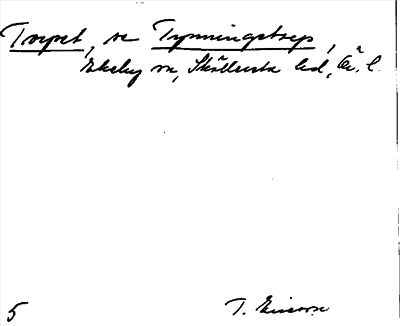 Torpet, se Tynningstorp,
Ekeby sn, Skyllersta hd, Ör. l.
5
T. Ericsson